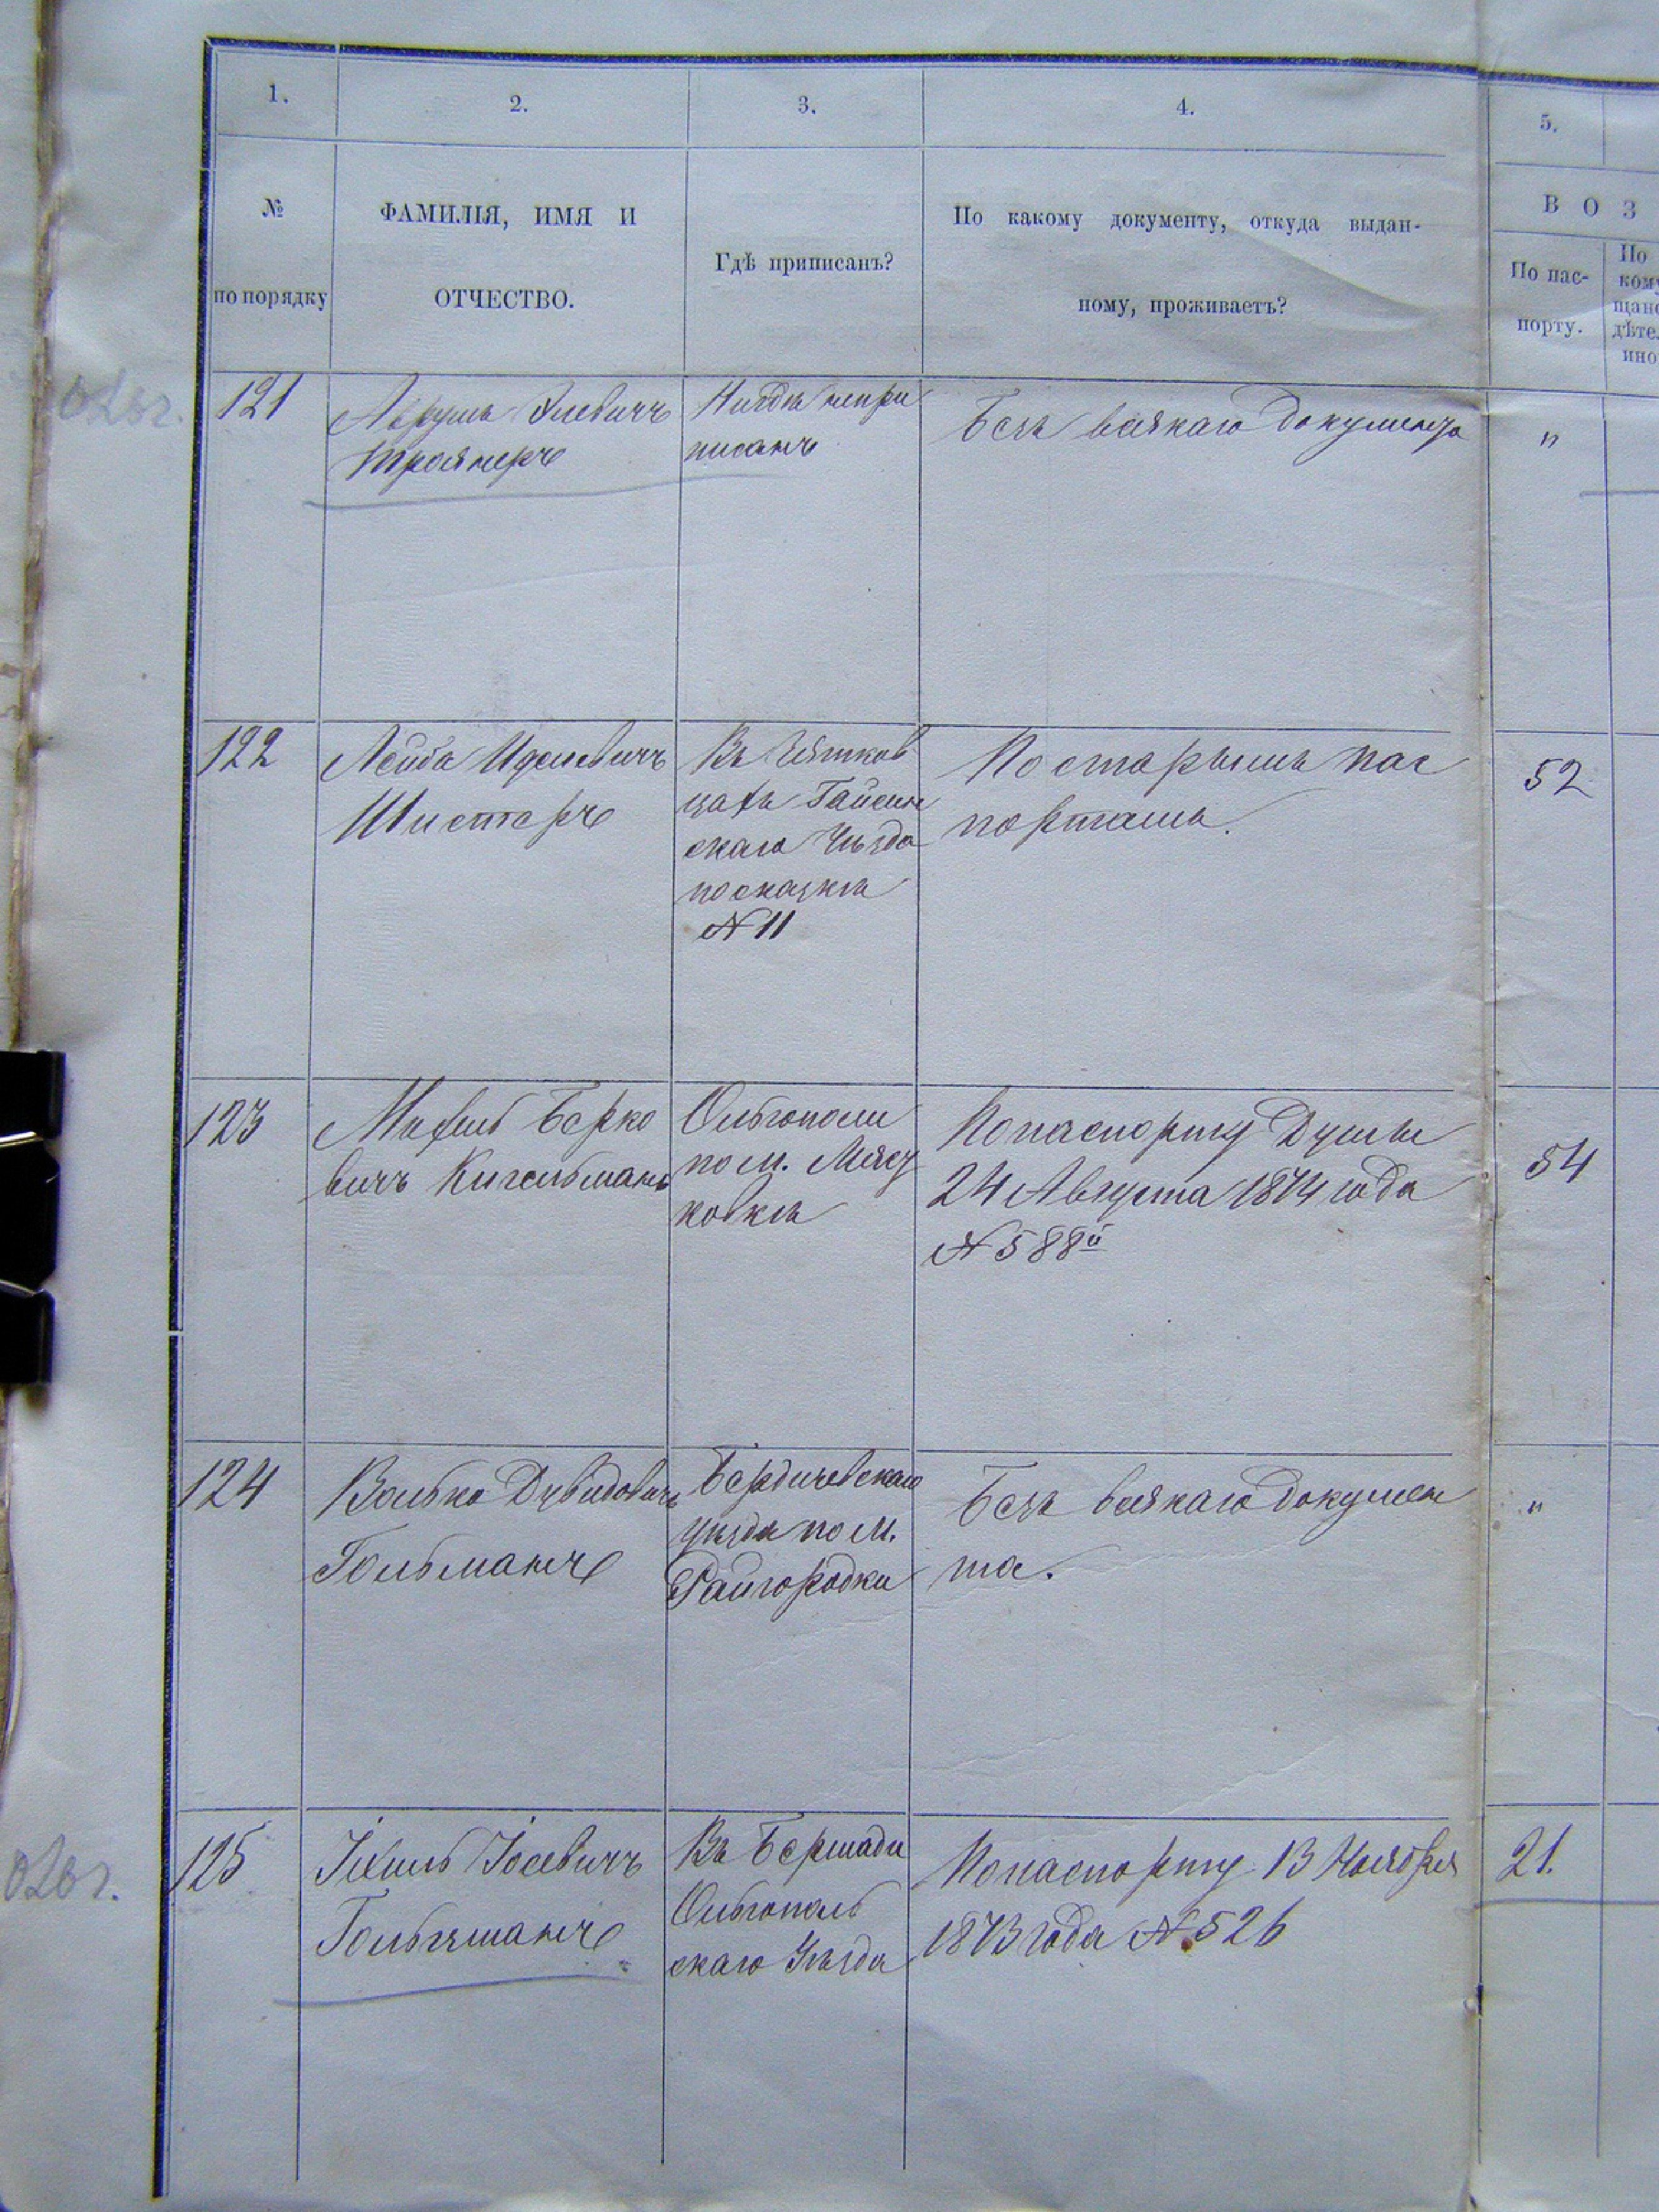 1.
2.
3.
4.
5.
№
по порядку
ФАМИЛІЯ, ИМЯ И
ОТЧЕСТВО.
Гдѣ приписанъ?
По какому документу, откуда выдан-
ному, проживаетъ?
В О З
По пас-
порту.
По
кому
щанс
дѣтел
ино
121
Аврумъ Элевичъ
Трояняеръ
Нигдѣ непри
писанъ
Безъ всякаго документа
"
122
Лейба Иделевичъ
Шистеръ
Въ
Гайсин
скаго Уѣзда
посказкѣ
N 11
По старымъ пас
портамъ.
52
123
Михель Берко
вичъ Кигельманъ
Ольгополи
по м. Мяст
ковкѣ
По паспорту Думы
24 Августа 1874 года
N 588й
54
124
Волько Дувидовичъ
Гольманъ
Бердичевскаго
уѣзда по м.
Райгородки
Безъ всякаго докумен
та.
"
125
Ихиль Іосевичъ
Гольцманъ
Въ Бершади
Ольгополь
скаго Уѣзда
По паспорту 13 Ноября
1873 года N 526
21.